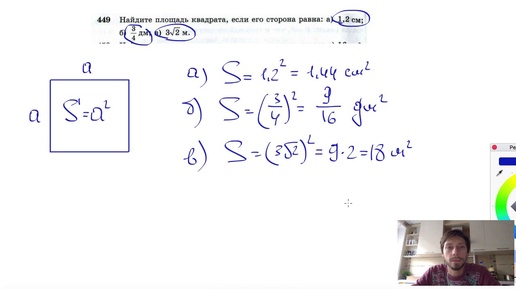 449 Найдите площадь квадрата, если его сторона равна: а) 1,2 см;
б) 3/4 дм; в) 3√2 м.
a
a
S=a²
а) S = 1,2² = 1,44 см²
б) S = (3/4)² = 9/16 дм²
в) S = (3√2)² = 9·2 = 18 м²